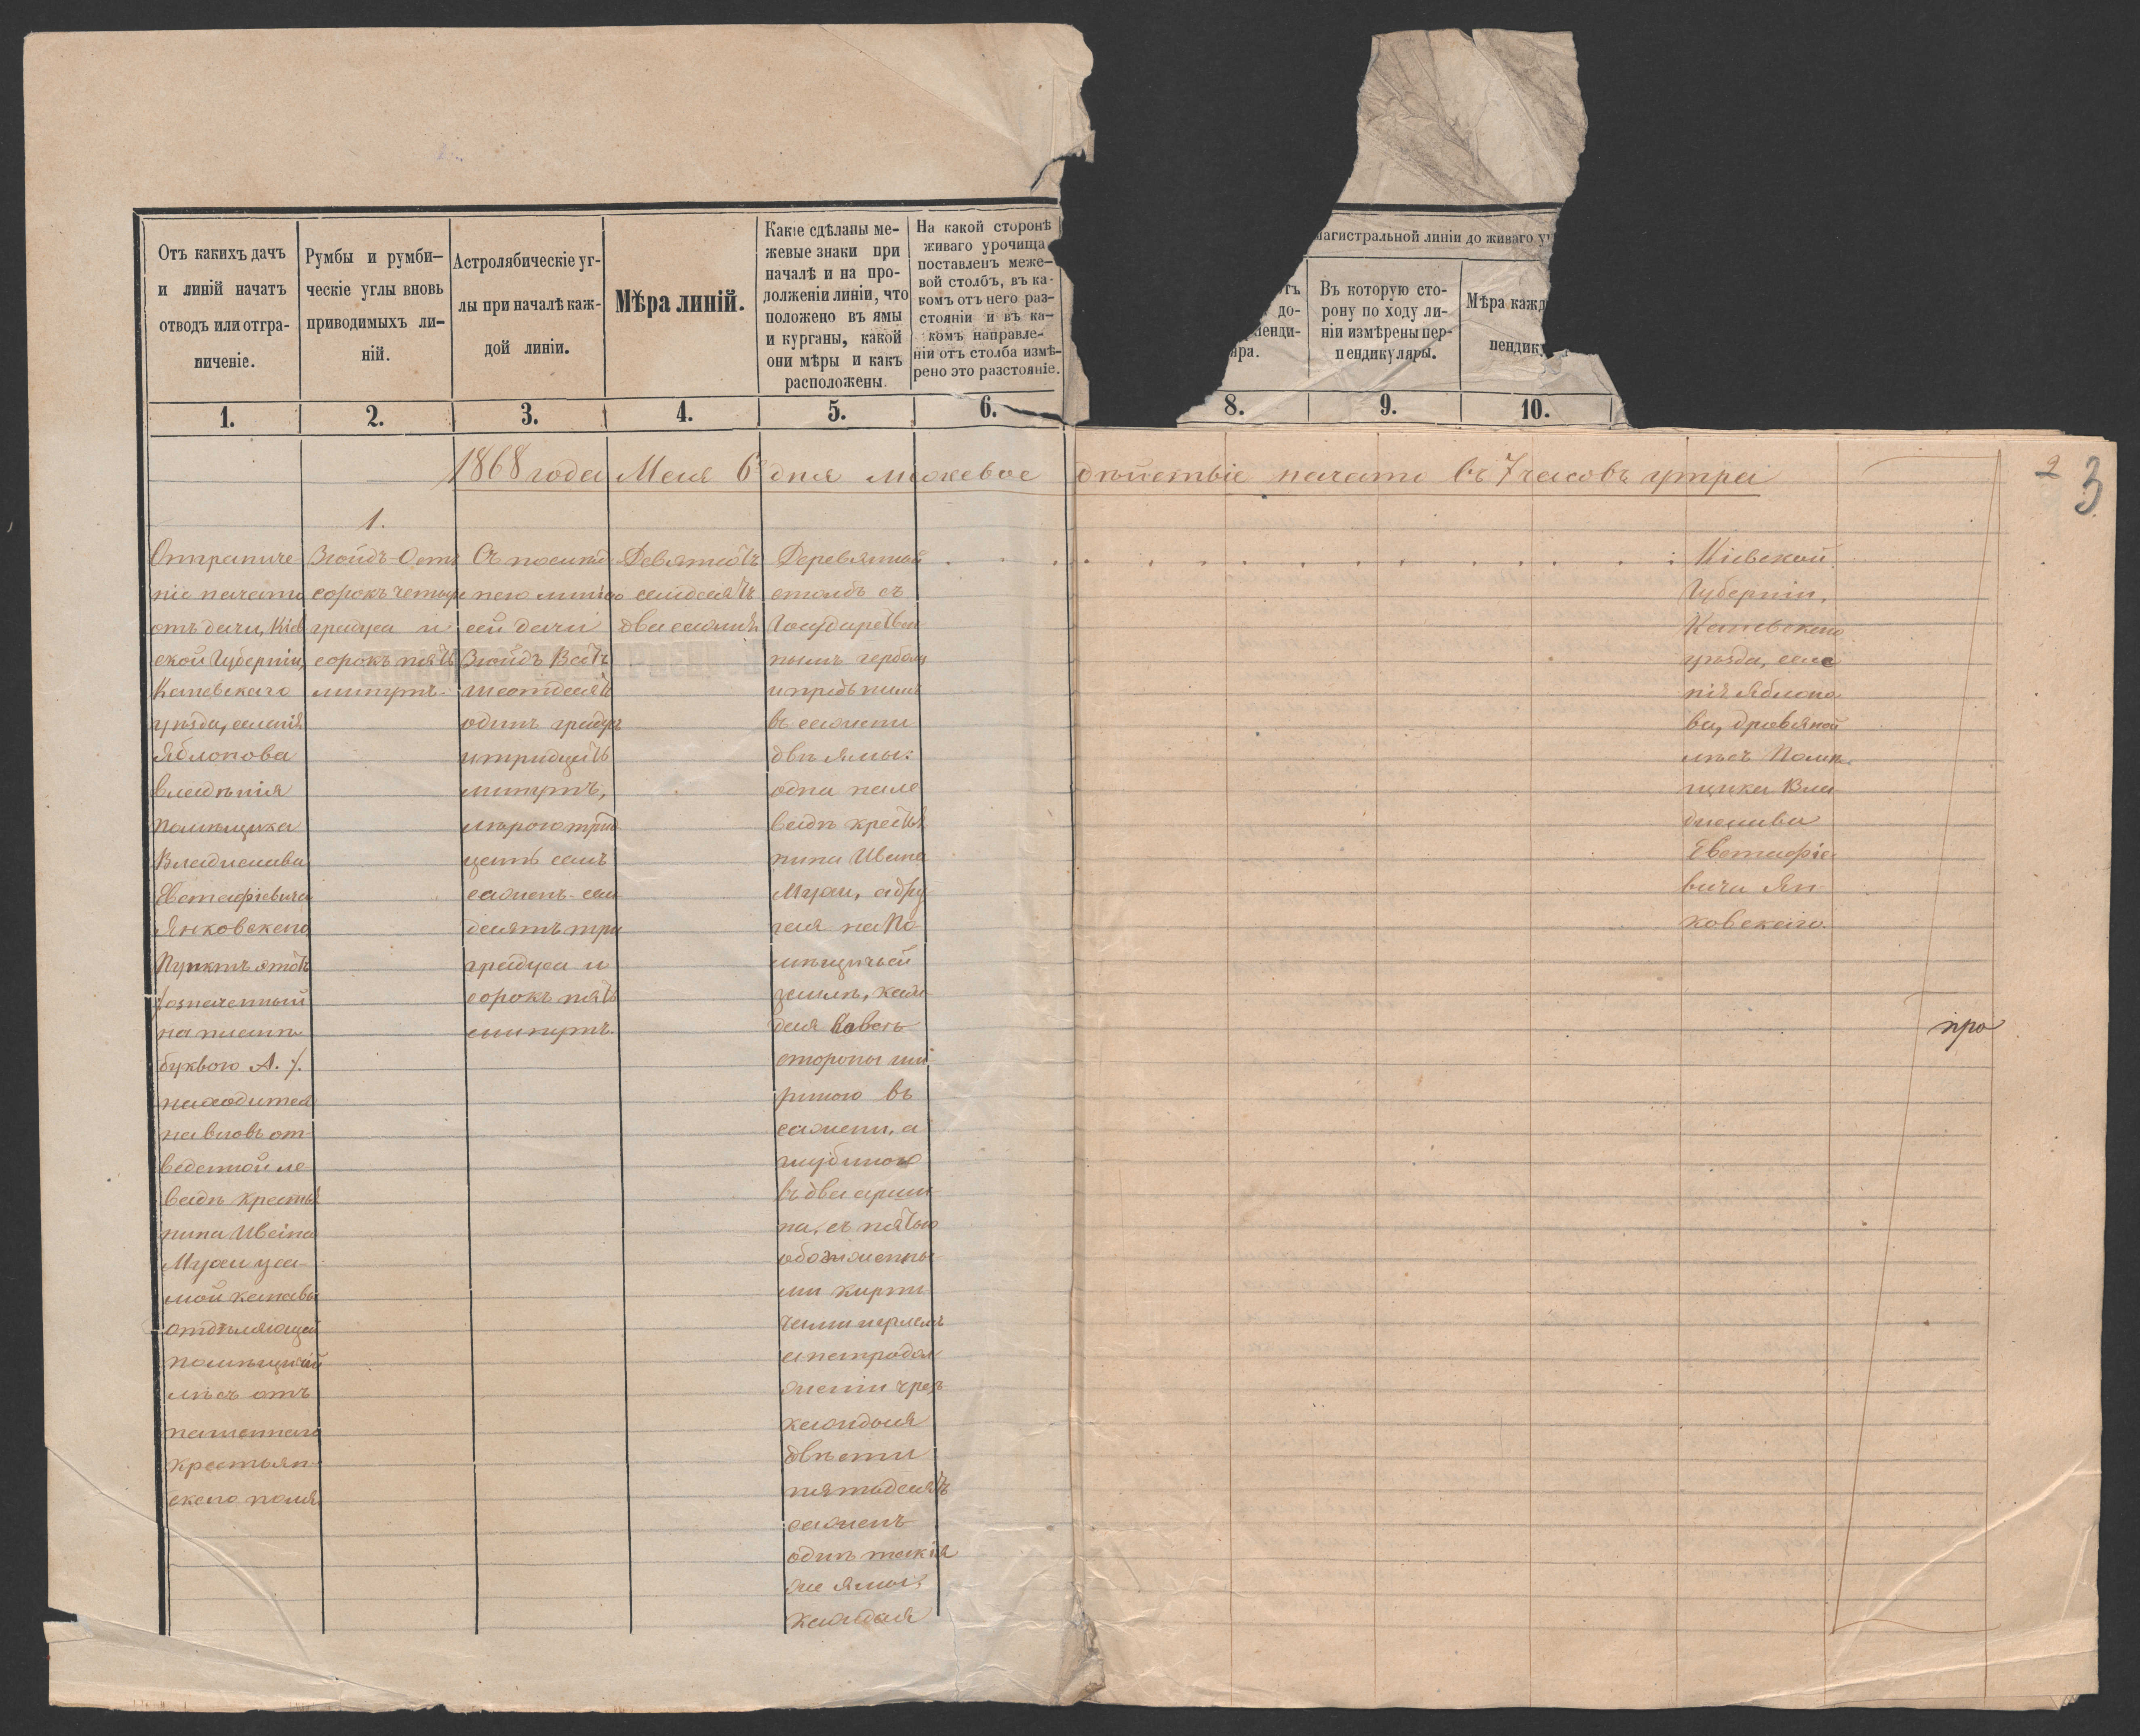 Отъ какихъ дачъ
и линій начатъ
отводъ или отгра-
ниченіе.
Румбы и румби-
ческіе углы вновь
приводимыхъ ли-
ній.
Астролябическіе уг-
лы при началѣ каж-
дой линіи.
Мѣра линій.
Какіе сдѣланы ме-
жевые знаки при
началѣ и на про-
долженіи линіи, что
положено въ ямы
и курганы, какой
они мѣры и какъ
расположены.
На какой сторонѣ
живаго урочища
поставленъ меже-
вой столбъ, въ ка-
комъ отъ него раз-
стояніи и въ ка-
комъ направле-
ніи отъ столба измѣ-
рено это разстояніе.
магистральной линіи до живаго у
до-
пенди-
яра.
Въ которую сто-
рону по ходу ли-
ніи измѣрены пер-
пендикуляры.
Мѣра кажд
пендик
1. 2. 3. 4. 5. 6. 8. 9. 10.
1868 года Мая 6 дня межевое дѣйствіе начато въ 7 часовъ утра
2 3
1.
Отграниче
ніе начато
отъ дачи, Кіев
ской Губерніи,
Каневскаго
уѣзда, селенія
Яблонова
владѣнія
Помѣщика
Владислава
Евстафіевича
Янковскаго
Пунктъ этотъ
/означенный
на планѣ
буквою А./.
находится
на вновь от
веденной ле
вадѣ крестья
нина Ивана
Мухи у са
мой канавы
отдѣляющей
помѣщичій
лѣсъ отъ
пашеннаго
крестьян
скаго поля
Зюйдъ-Остъ
сорокъ четыре
градуса и
сорокъ пять
минутъ.
Съ послѣд
нею линіею
сей дачи
Зюйдъ Вестъ
шестьдесятъ
одинъ градусъ
и тридцать
минутъ,
мѣрою трид
цать семь
сажень. сем
десятъ три
градуса и
сорокъ пять
минутъ.
Девяносто
семдесятъ
два сажня.
Деревянный
столбъ съ
Государствен
нымъ гербомъ
и предъ нимъ
въ сажени
двѣ ямы:
одна на ле
вадѣ крестья
нина Ивана
Мухи, а дру
гая на По
мѣщичьей
землѣ, каж
дая во всѣ
стороны ши
риною въ
сажени, а
глубиною
въ два арши
на, съ пятью
обожженны
ми кирпи
чами и углемъ
а на продол
женіи чрезъ
каждыя
двѣсти
пятьдесятъ
сажень
однѣ такія
же ямы,
каждая
Кіевской
Губерніи,
Каневскаго
уѣзда, селе
нія Яблоно
ва, дровяной
лѣсъ Помѣ
щика Вла
дислава
Евстафіе
вича Ян
ковскаго.
про